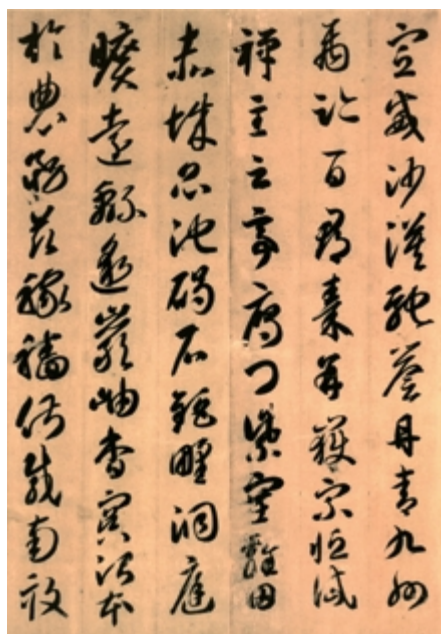 宣威沙漠馳譽丹青九州
禹跡百郡秦并嶽宗恒岱
禪主云亭雁門紫塞雞田
赤城昆池碣石鉅野洞庭
曠遠綿邈巖岫杳冥治本
於農務茲稼穡俶載南畝